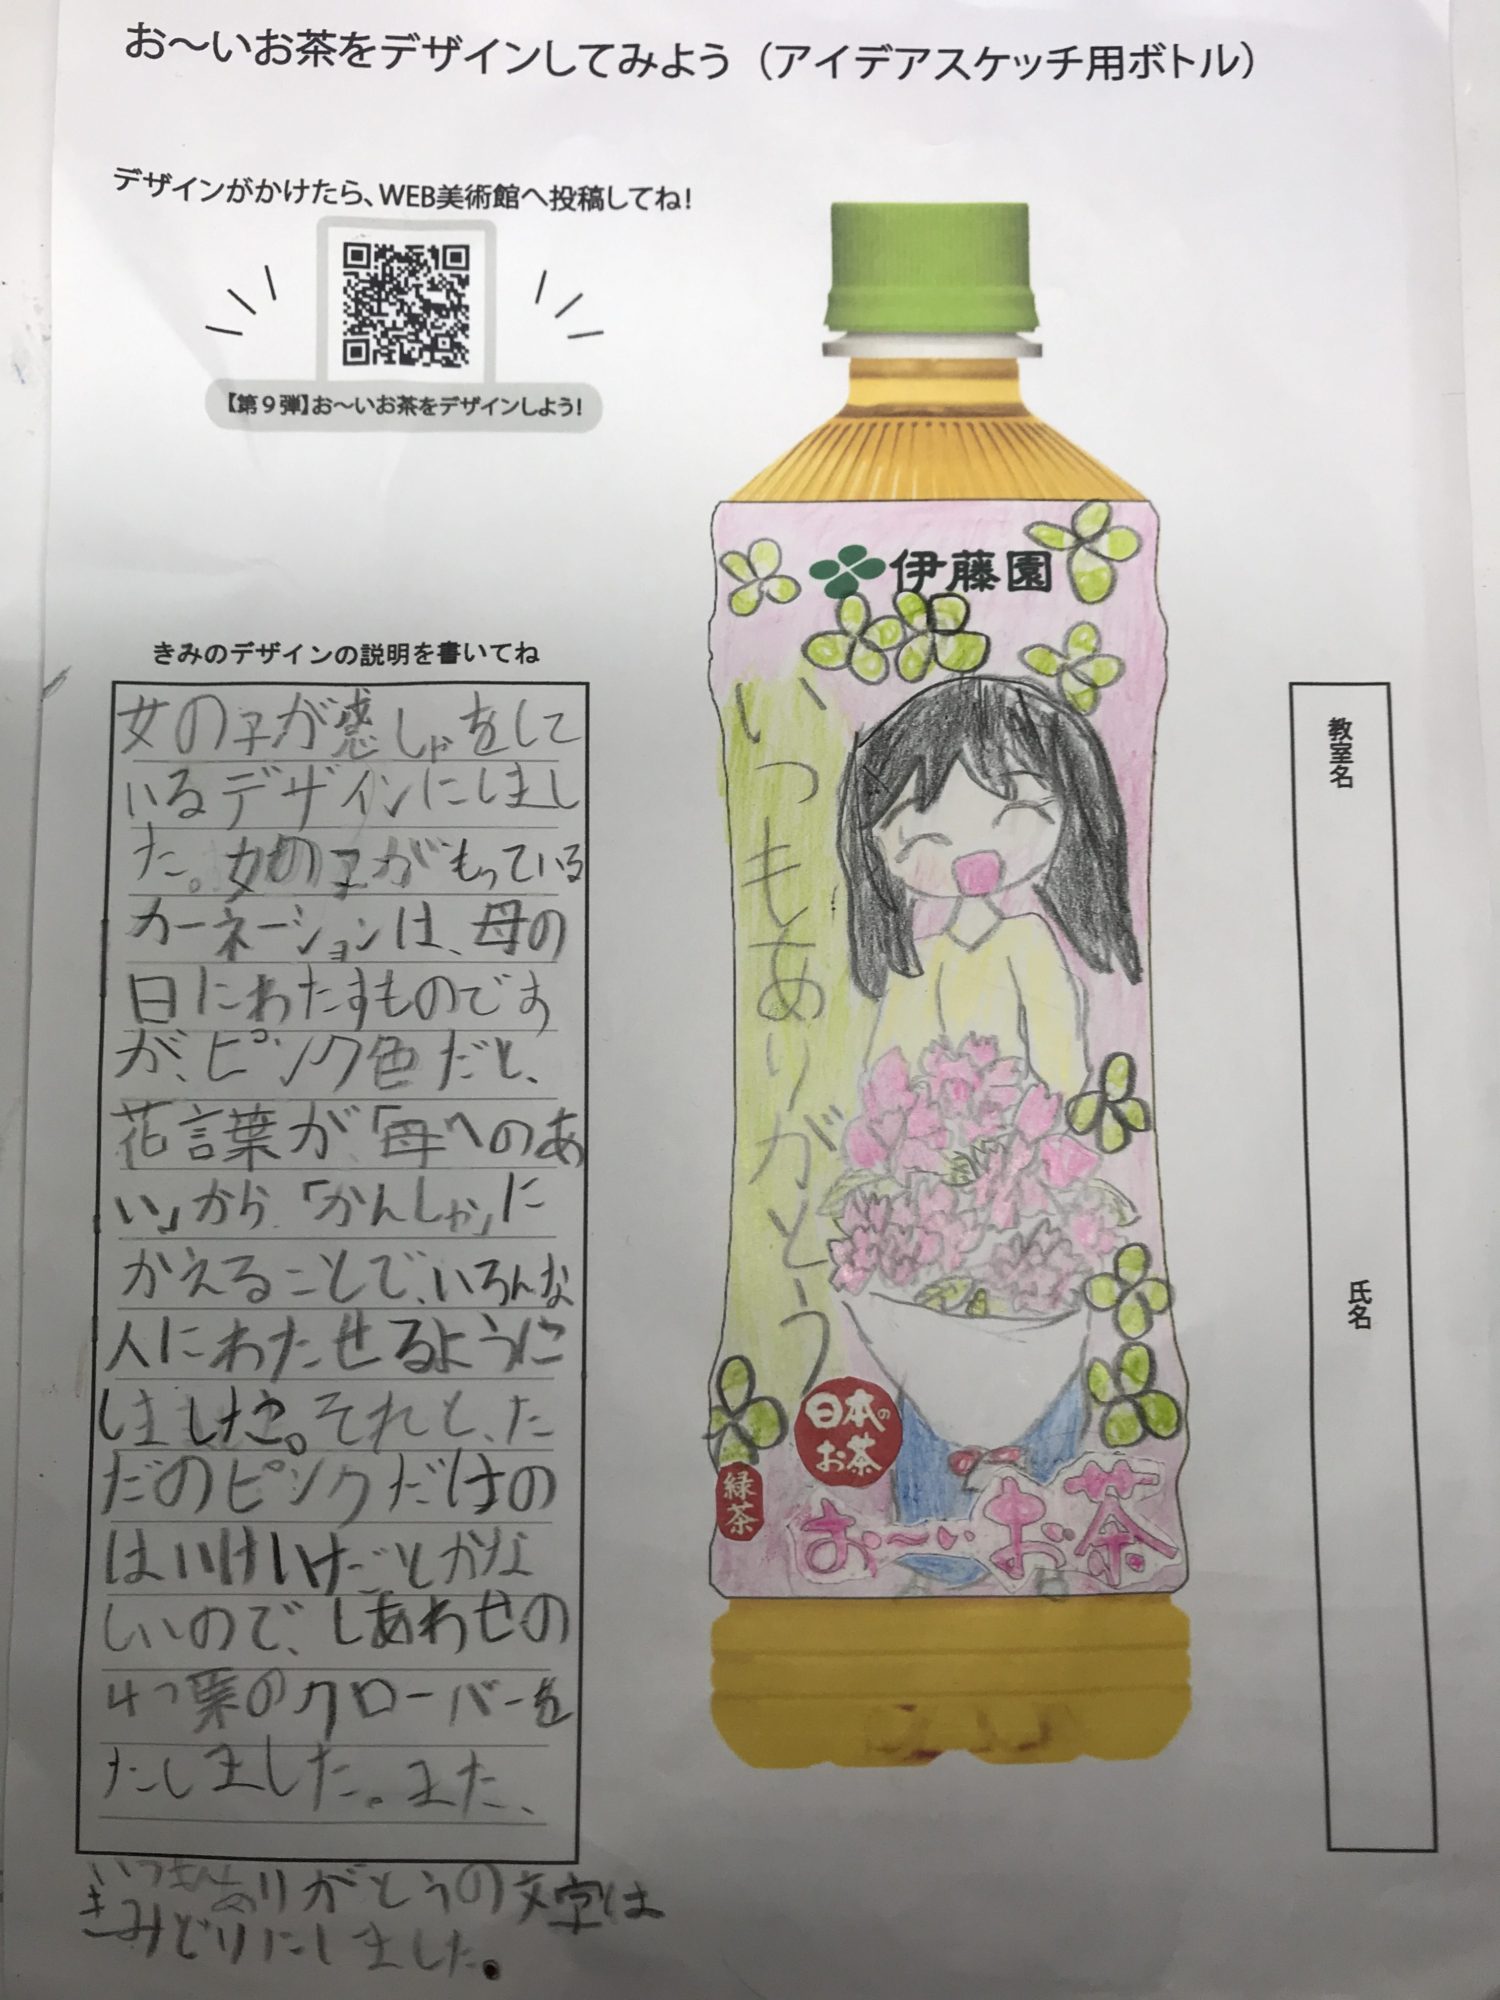 お〜いお茶をデザインしてみよう（アイデアスケッチ用ボトル）
デザインがかけたら、WEB美術館へ投稿してね！
【第９弾】お〜いお茶をデザインしよう！
きみのデザインの説明を書いてね
女の子が感しゃをして
いるデザインにしまし
た。女の子がもっている
カーネーションは、母の
日にわたすものです
が、ピンク色だと、
花言葉が「母へのあ
い」から「かんしゃ」に
かえることで、いろんな
人にわたせるように
しました。それと、た
だのピンクだけの
はいけいだとかな
しいので、しあわせの
4つ葉のクローバーを
たしました。また、
いつもありがとうの文字は
きみどりにしました。
伊藤園
いつもありがとう
日本の
お茶
緑茶
お〜いお茶
教室名
氏名